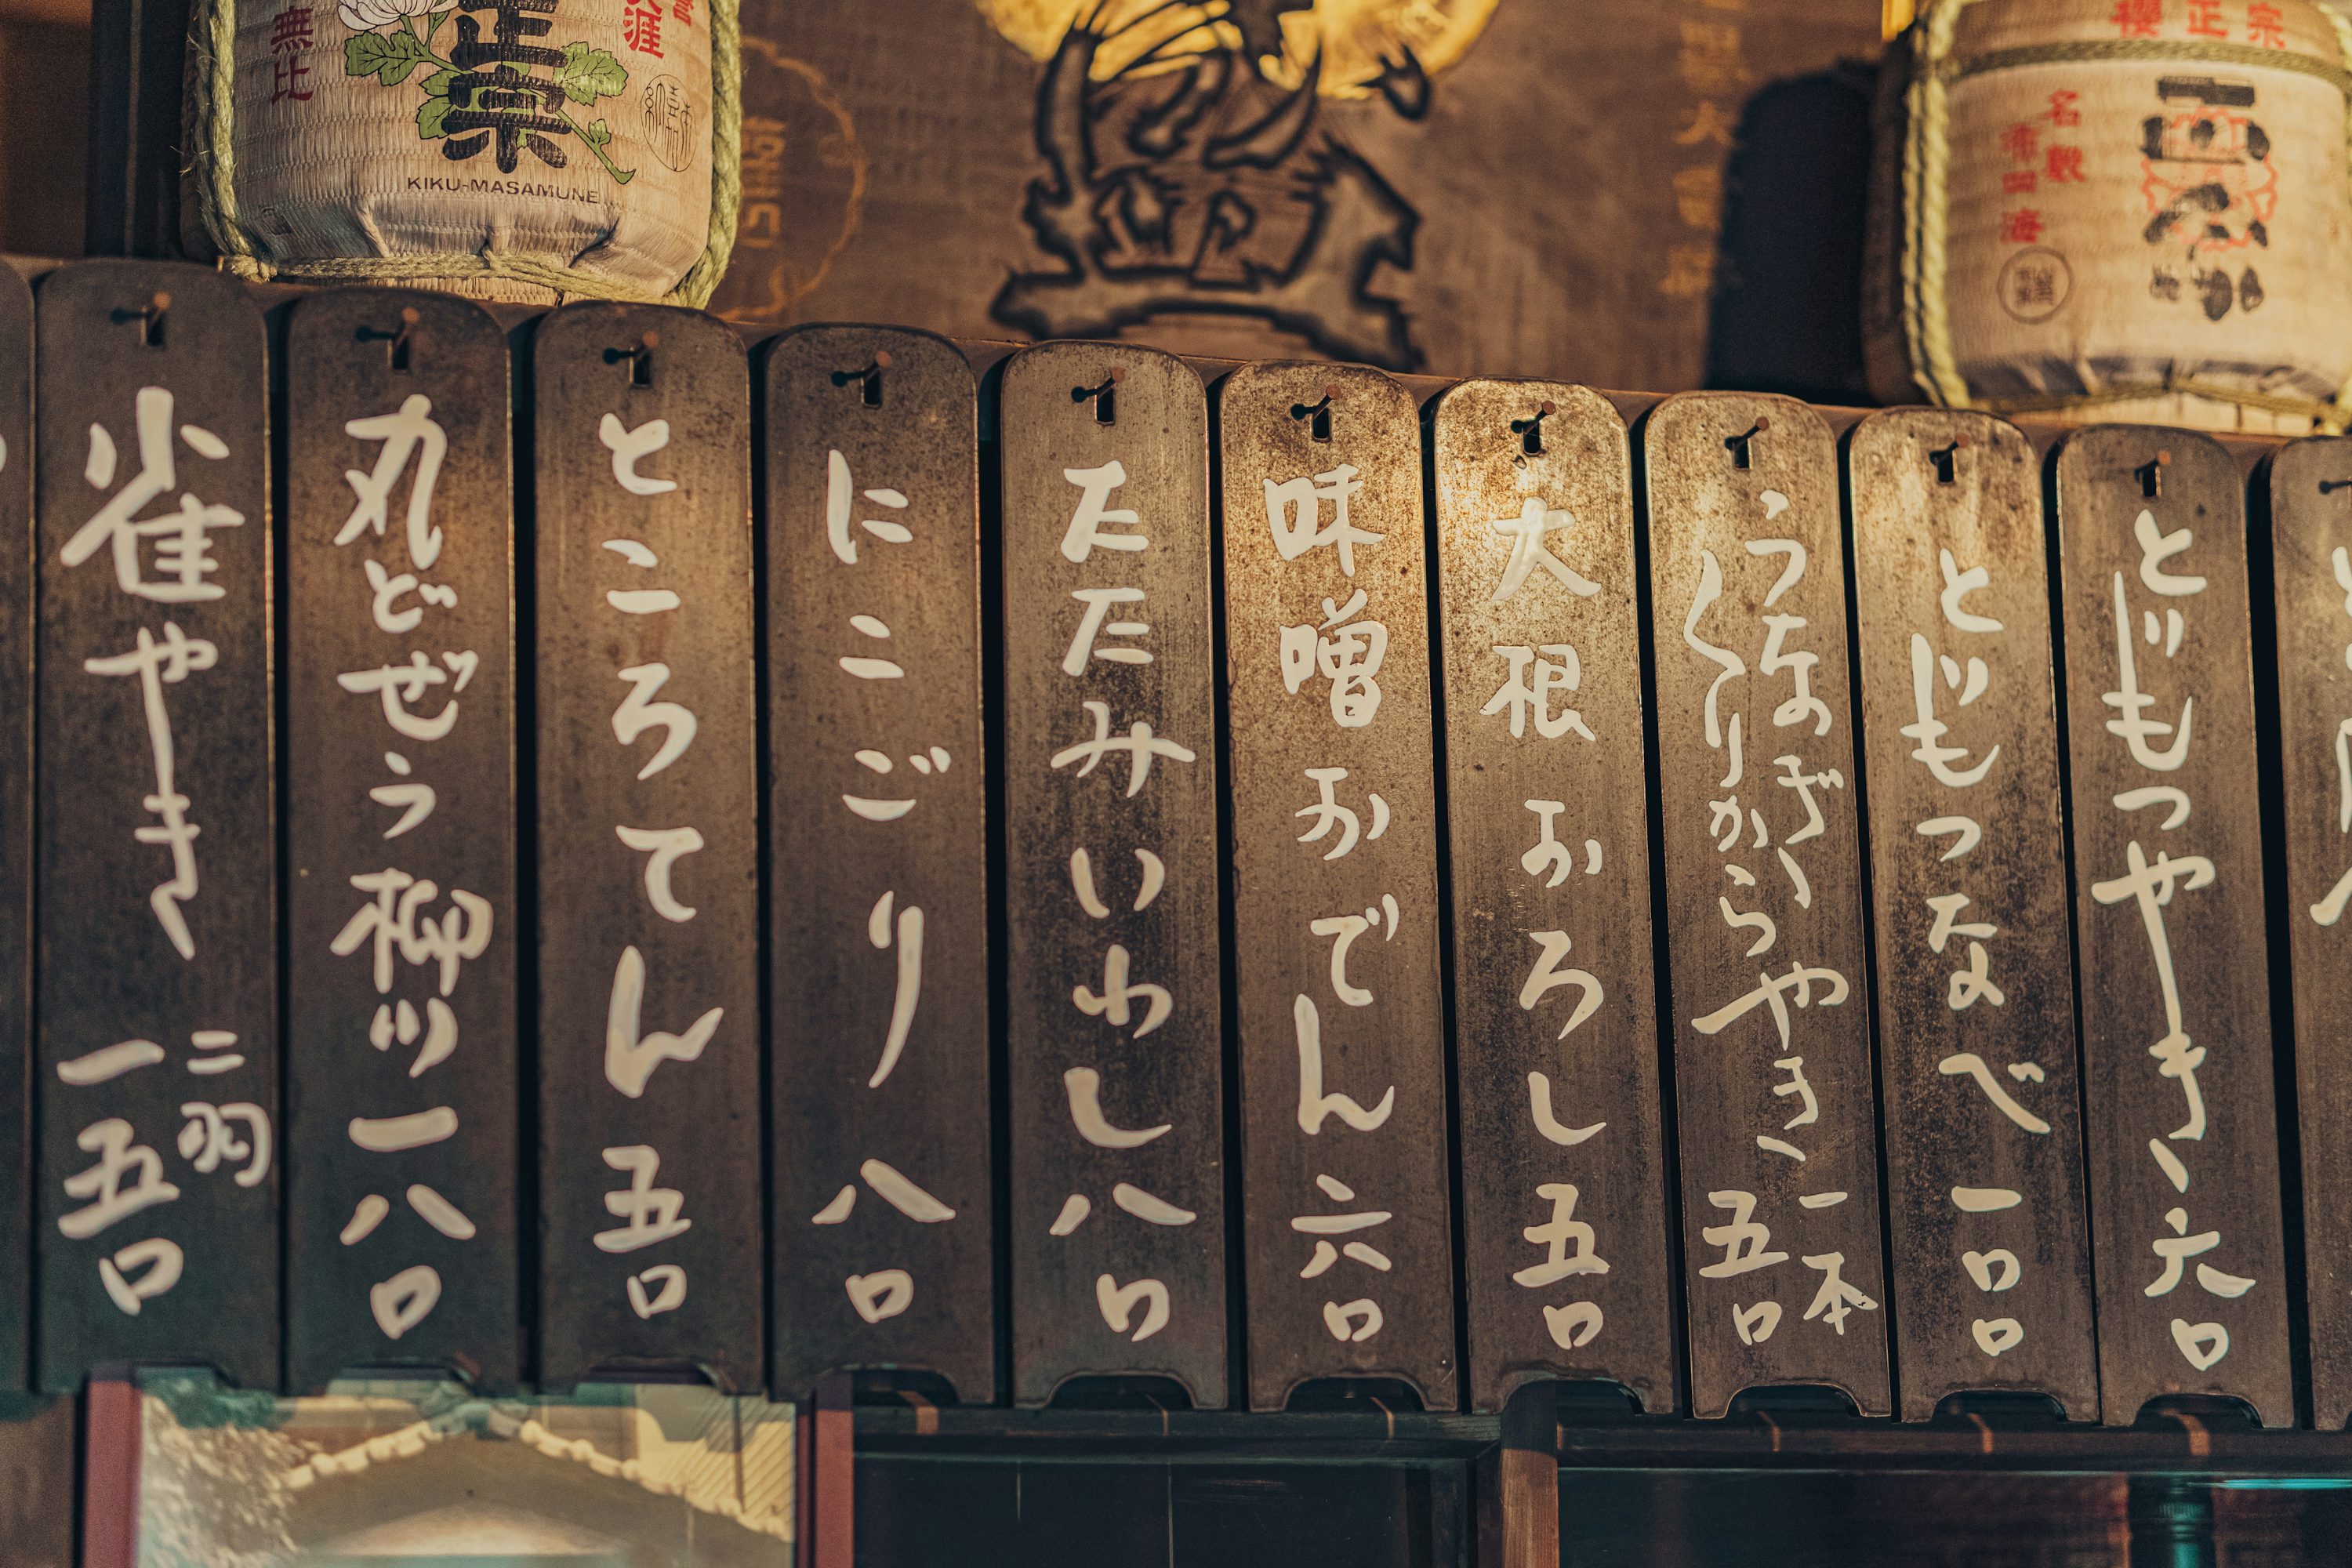 正宗
無比
KIKU-MASAMUNE
櫻正宗
名聲
布四海
とじもつやき 六〇
とじもつなべ 一〇〇
うなぎ
くりからやき 一本
五〇
大根おろし 五〇
味噌おでん 六〇
たたみいわし 八〇
にこごり 八〇
ところてん 五〇
丸どぜう柳川 一八〇
雀やき 二羽
一五〇